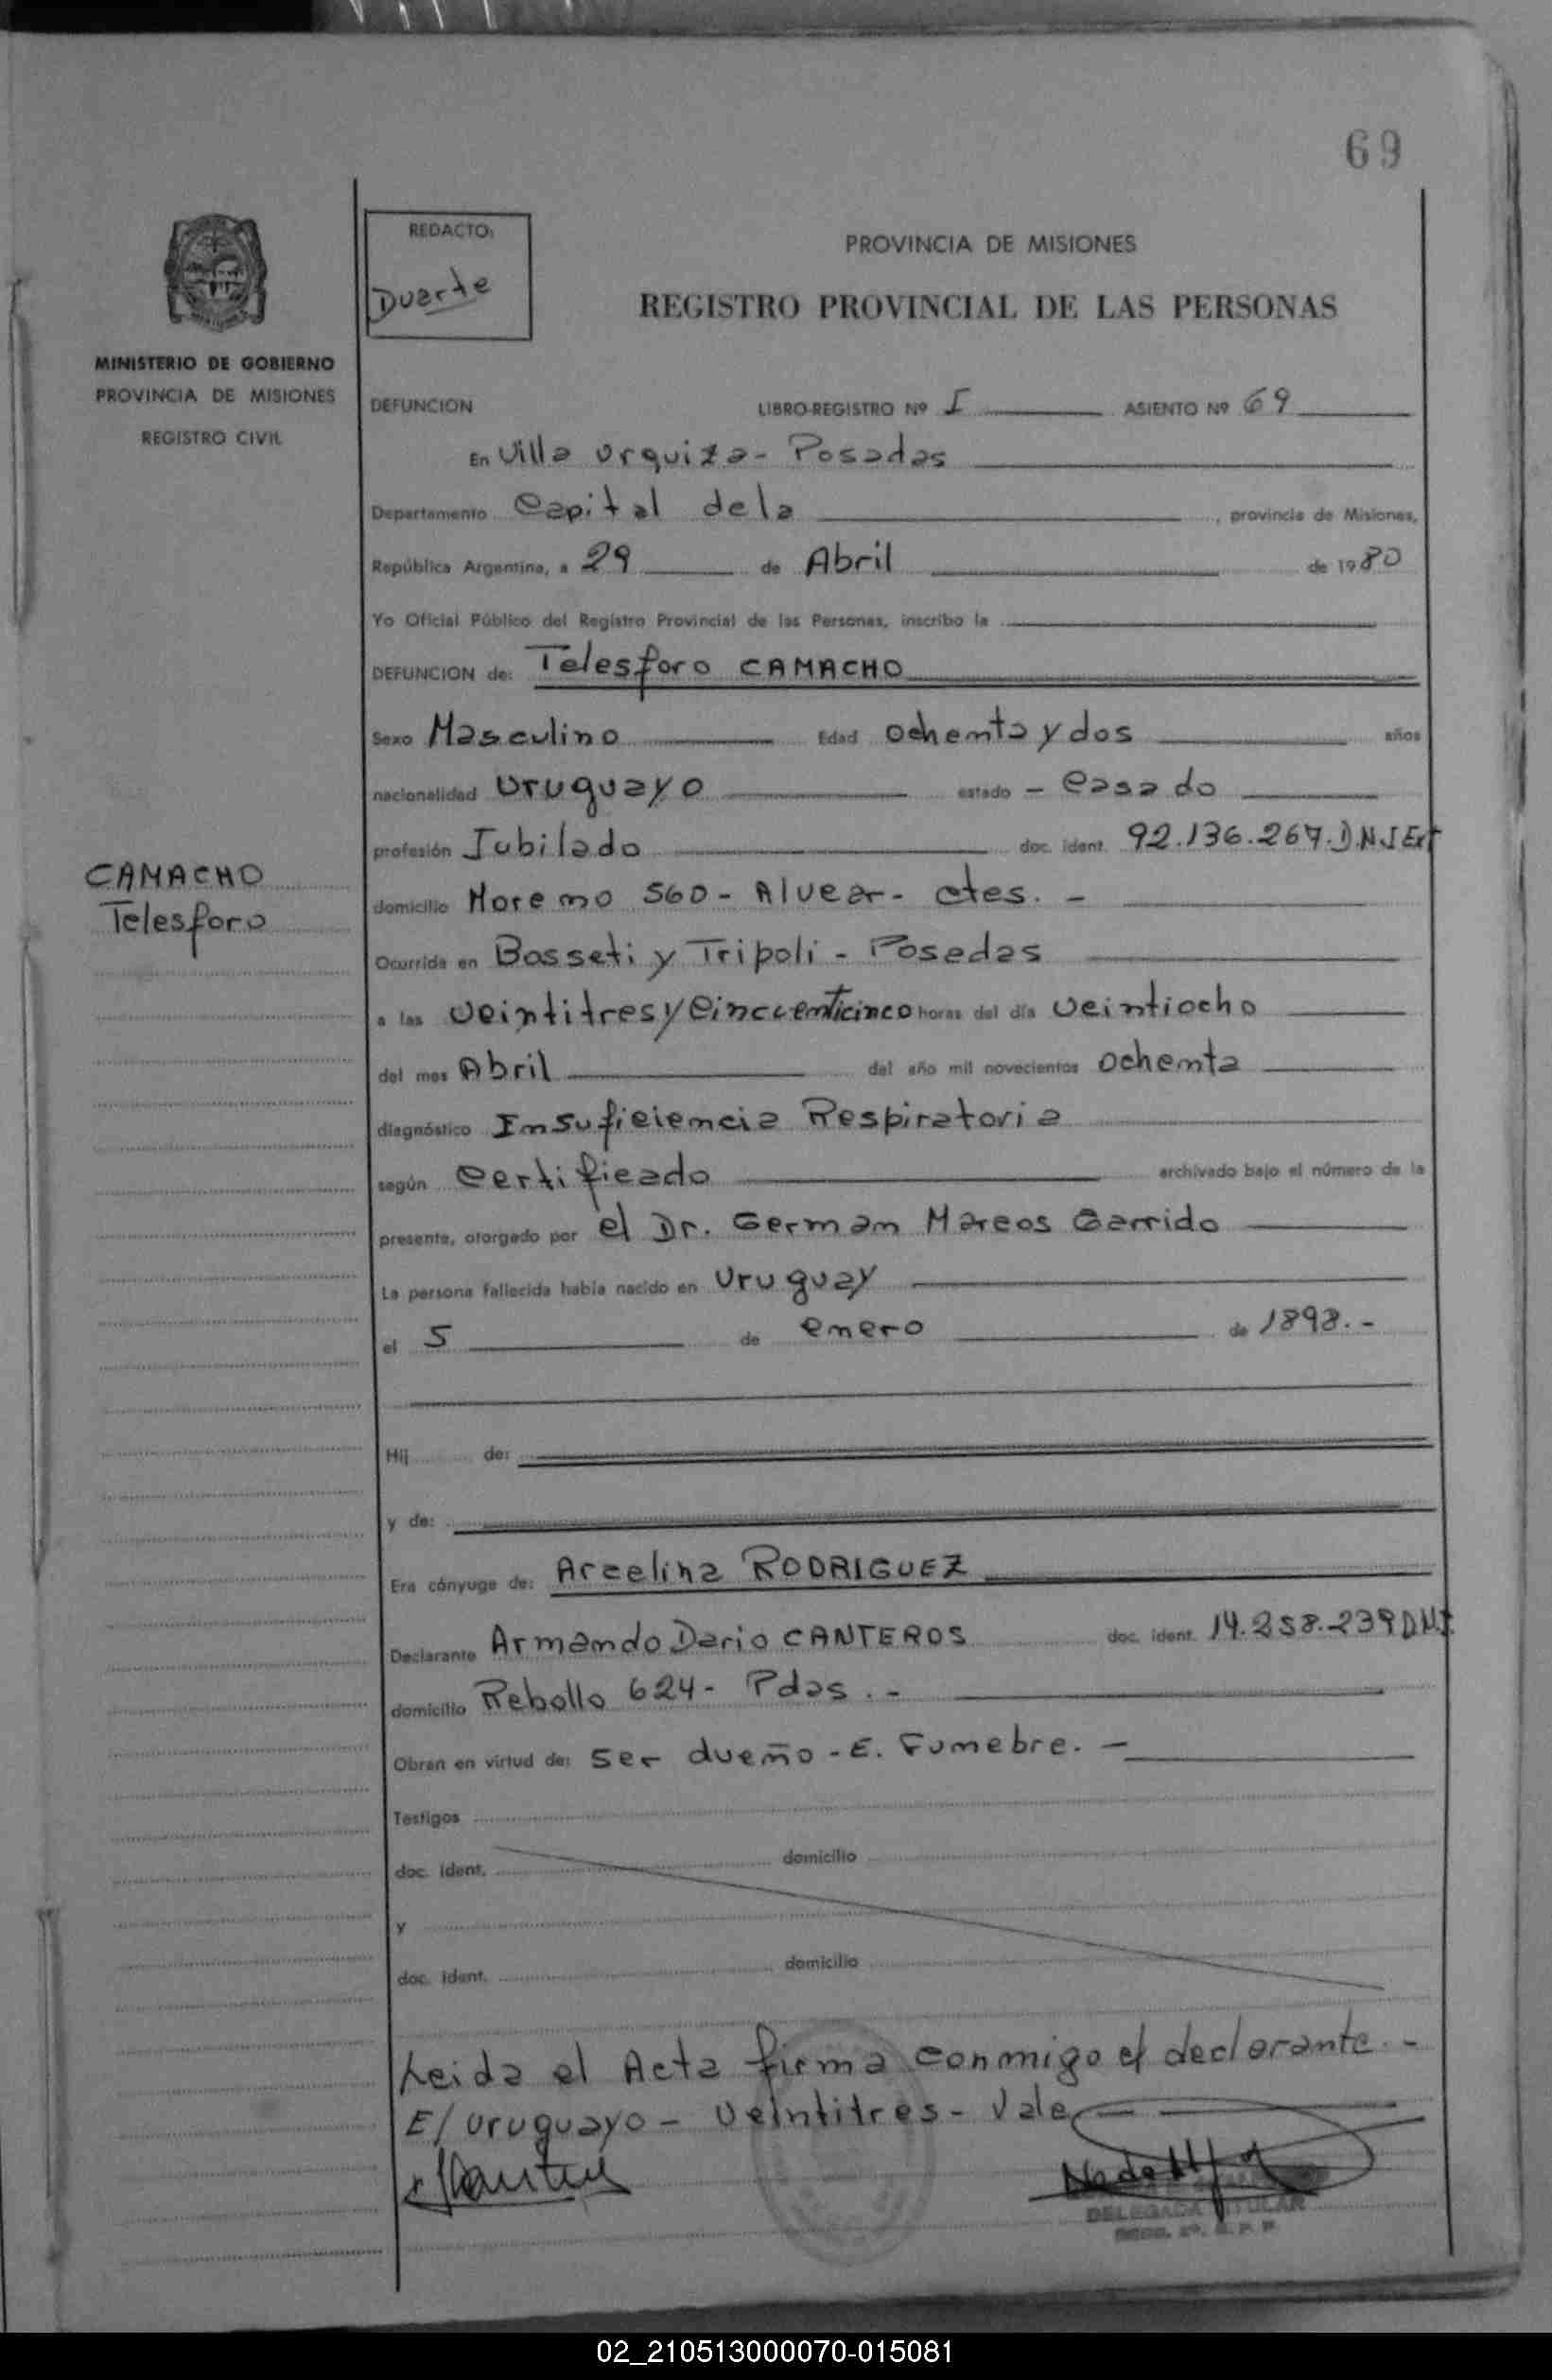 69
REDACTO:
Duarte
PROVINCIA DE MISIONES
REGISTRO PROVINCIAL DE LAS PERSONAS
MINISTERIO DE GOBIERNO
PROVINCIA DE MISIONES
REGISTRO CIVIL
DEFUNCION LIBRO-REGISTRO Nº I ASIENTO Nº 69
En Villa Urquiza - Posadas
Departamento Capital de la , provincia de Misiones,
República Argentina, a 29 de Abril de 1980
Yo Oficial Público del Registro Provincial de las Personas, inscribo la
DEFUNCION de: Telesforo CAMACHO
Sexo Masculino Edad Ochenta y dos años
nacionalidad Uruguayo estado - Casado
profesión Jubilado doc. ident. 92.136.267. D.N.I Ext
CAMACHO
Telesforo
domicilio Moreno 560 - Alvear - Ctes. -
Ocurrida en Bosseti y Tripoli - Posadas
a las Veintitres y Cincuenticinco horas del día Veintiocho
del mes Abril del año mil novecientos Ochenta
diagnóstico Insuficiencia Respiratoria
según Certificado archivado bajo el número de la
presente, otorgado por el Dr. German Marcos Garrido
La persona fallecida había nacido en Uruguay
el 5 de enero de 1898. -
Hij de:
y de:
Era cónyuge de: Arcelina RODRIGUEZ
Declarante Armando Dario CANTEROS doc. ident. 14.258.239 D.N.I.
domicilio Rebollo 624 - Pdas. -
Obran en virtud de: Ser dueño - E. Funebre. -
Testigos
doc. ident. domicilio
y
doc. ident. domicilio
Leida el Acta firma conmigo el declarante. -
E/ Uruguayo - Veintitres - Vale
DELEGADA TITULAR
02_210513000070-015081